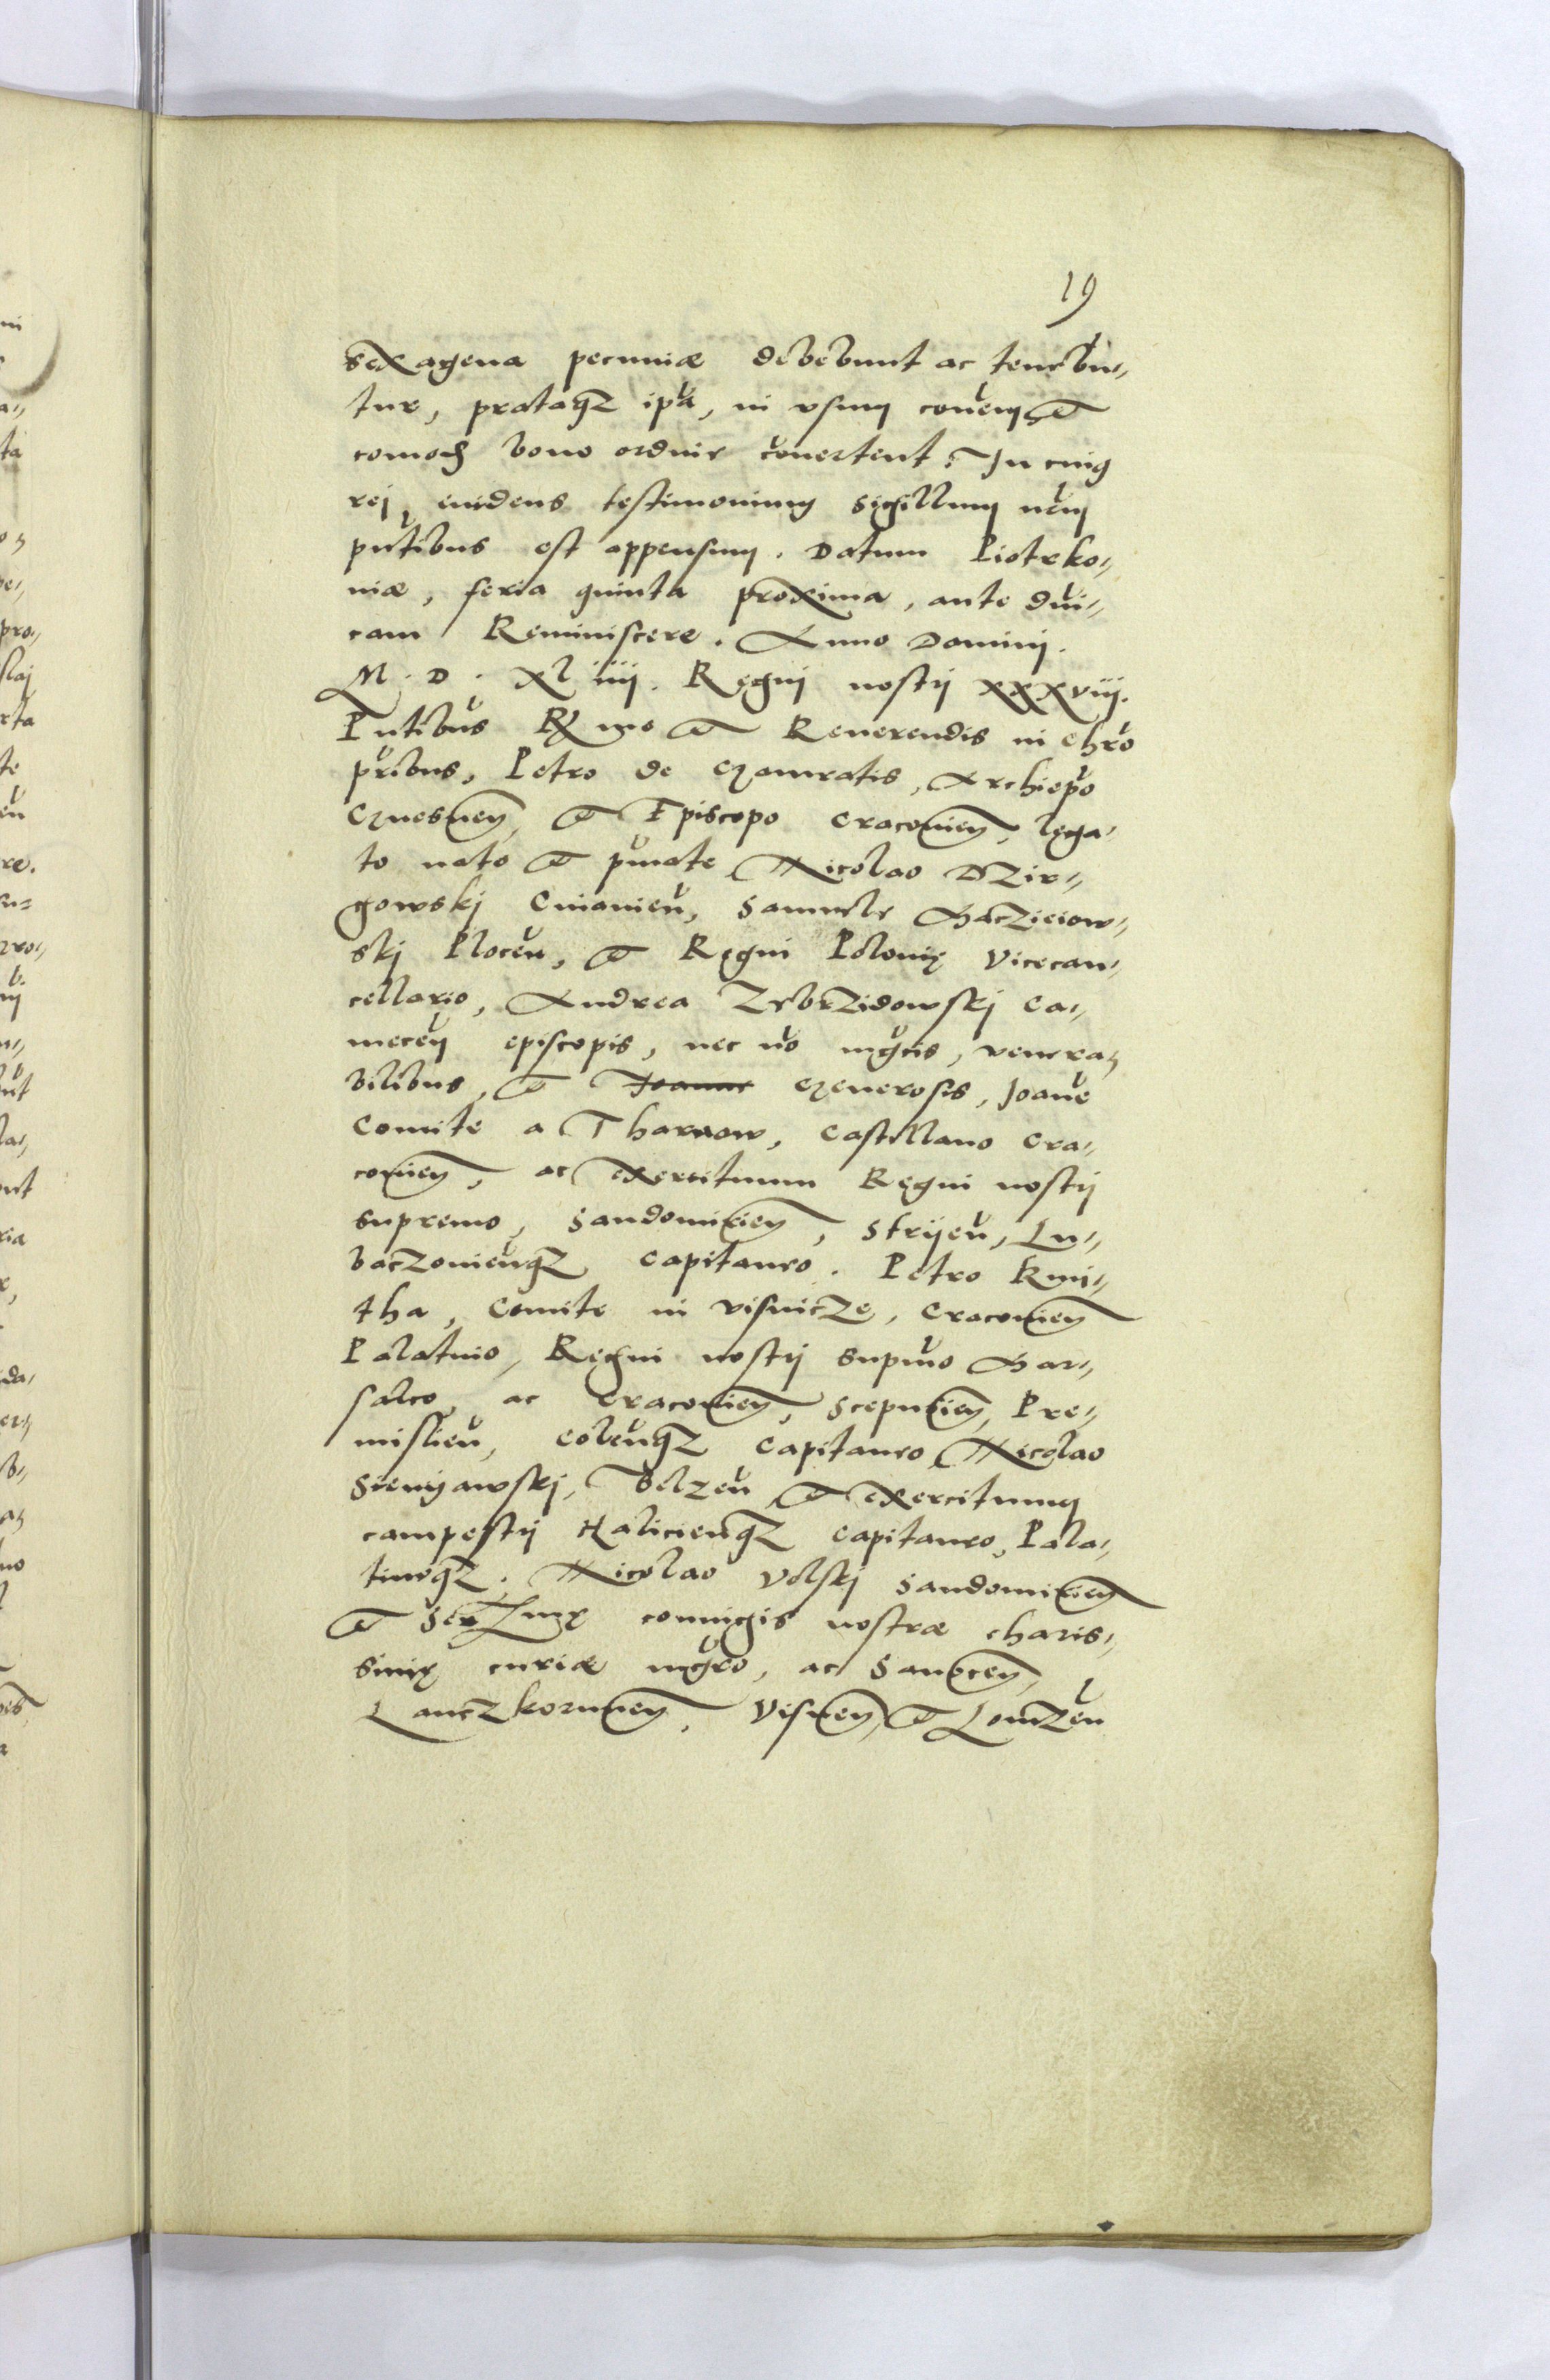 19
sexagena pecuniæ debebunt ac tenebun„
tur, prataqz ipa, in vsum couem et
comodū bono ordine cōuertent. In cuius
rej, euidens testimonium sigillum nrum
pntibus est appensum. Datum Piotrko„
uiæ, feria quinta proxima, ante dni„
cam Reminiscere. Anno Dominj.
M. D. Xl iiij. Regnj nostrj xxxviij.
Pntibus Rmo et Reuerendis in Chro
pribus, Petro de Gamratis, Archiepo
Gnesnen, et Episcopo Cracouien, lega„
to nato et pmate Nicolao Dzier„
gowskj Cuiauien, Samuele Maczieiow„
skj Plocen, et Regni Polonię Vicecan„
cellario, Andrea Zebrzidowskj Ca„
mecen episcopis, nec no mgcis, venera„
bilibus, et Joanne Generosis, Joane
Comite a Tharnow, Castellano Cra„
couien, ac exercituum Regni nostrj
supremo, Sandomirien, Strijen, Lu„
baczouienqz Capitaneo. Petro Kmi„
tha, Comite in Visnicze, Cracouien
Palatino, Regni nostrj supmo Mar„
salco, ac Cracouien, Scepusien, Pre„
mislien, Colenqz Capitaneo Nicolao
Sienyawskj, Belzen et exercituum
campestrj Halicienqz Capitaneo, Pala„
tinoqz. Nicolao Volskj Sandomirien
et Sermę coniugis nostræ charis„
simę curiæ mgro, ac Sanocen,
Lanczkorunen, Visnen, et Lomzen